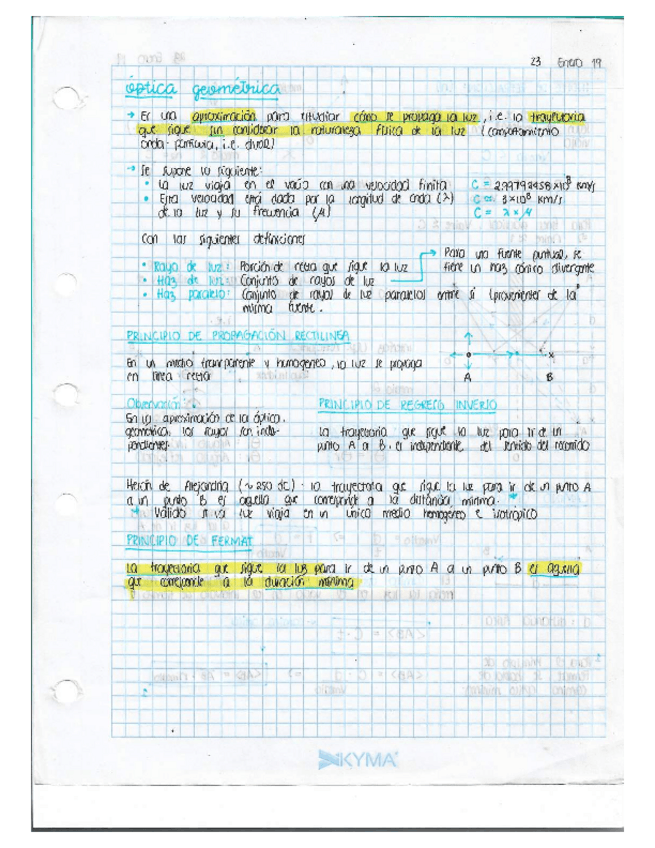 23 Enero 19
óptica geométrica
→ Es una aproximación para estudiar cómo se propaga la luz, i.e. la trayectoria
que sigue sin considerar la naturaleza física de la luz (comportamiento
onda-partícula, i.e. dual)
→ Se supone lo siguiente:
• La luz viaja en el vacío con una velocidad finita C = 2.99792458×10⁸ km/s
• Esta velocidad está dada por la longitud de onda (λ) C ≈ 3×10⁸ km/s
de la luz y su frecuencia (μ) C = λ×μ
Con las siguientes definiciones
• Rayo de luz: Porción de recta que sigue la luz
• Haz de luz: Conjunto de rayos de luz
→ Para una fuente puntual, se
tiene un haz cónico divergente
• Haz paralelo: Conjunto de rayos de luz paralelos entre sí (provenientes de la
misma fuente.
PRINCIPIO DE PROPAGACIÓN RECTILINEA
En un medio transparente y homogéneo, la luz se propaga
en línea recta
A B
Observación:
En la aproximación de la óptica.
geométrica, los rayos son inde-
pendientes
PRINCIPIO DE REGRESO INVERSO
La trayectoria que sigue la luz para ir de un
punto A a B. es independiente del sentido del recorrido
Herón de Alejandría (~250 dc): la trayectoria que sigue la luz para ir de un punto A
a un punto B es aquella que corresponde a la distancia mínima.
Válido si la luz viaja en un único medio homogéneo e isotrópico
PRINCIPIO DE FERMAT
La trayectoria que sigue la luz para ir de un punto A a un punto B es aquella
que corresponde a la duración mínima
KYMA